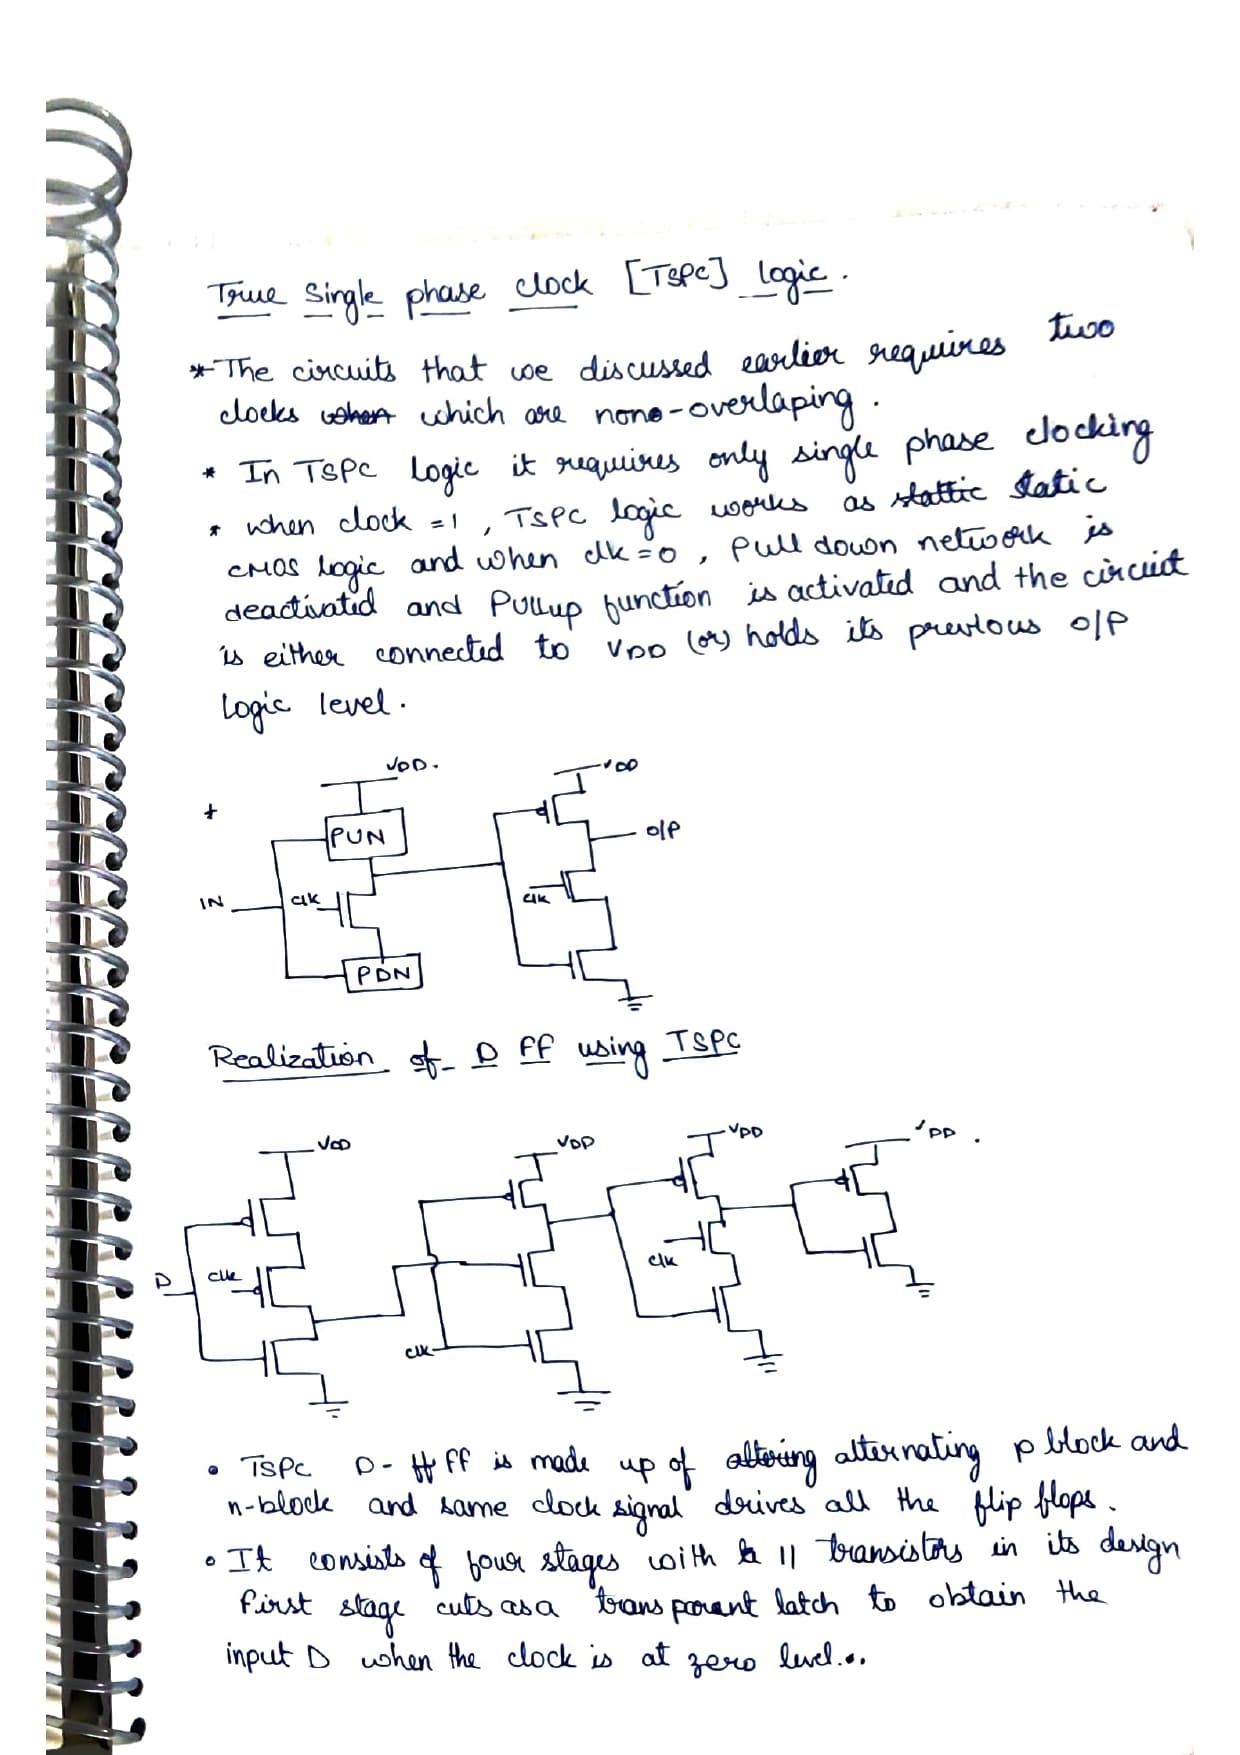 True Single phase clock [TSPC] logic.
* The circuits that we discussed earlier requires two
clocks when which are none-overlaping.
* In TSPC Logic it requires only single phase clocking
* when clock =1, TSPC logic works as stattic static
CMOS logic and when clk=0, Pull down network is
deactivated and Pullup function is activated and the circuit
is either connected to VDD (or) holds its previous O/P
Logic level.
VDD.
VDD
+
PUN
O/P
IN
clk
clk
PDN
Realization of D FF using TSPC
VDD
VDD
VDD
VDD.
D
clk
clk
clk
• TSPC D- FF is made up of altering alternating p block and
n-block and same clock signal drives all the flip flops.
• It consists of four stages with 11 transistors in its design
first stage cuts as a transparent latch to obtain the
input D when the clock is at zero level...